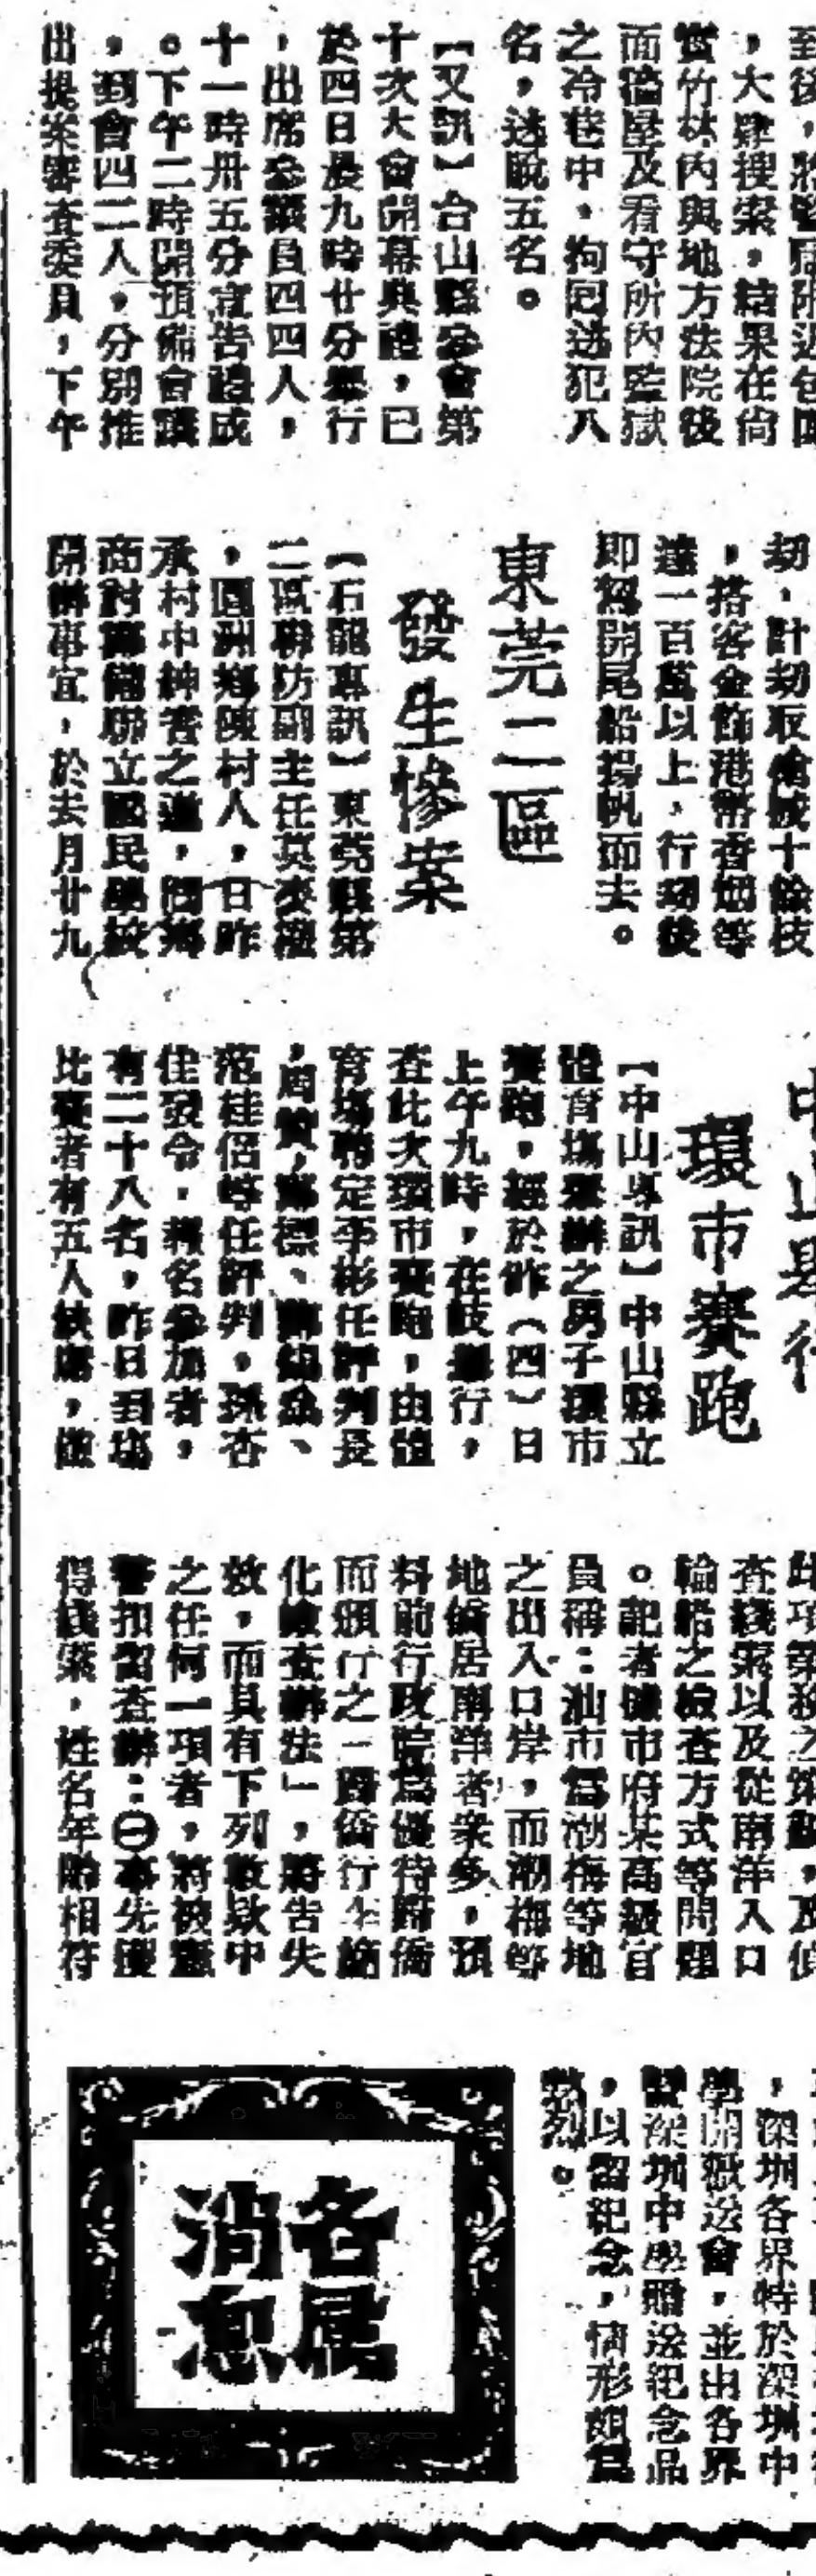 至後，將監獄附近包圍
，大肆搜索，結果在尙
實竹林內與地方法院後
面牆屋及看守所內監獄
之冷巷中，拘回逃犯八
名，逃脫五名。
【又訊】台山縣參會第
十次大會開幕典禮，已
於四日晨九時廿分舉行
，出席參議員四四人，
十一時卅五分宣告禮成
。下午二時開預備會議
，到會四二人，分別推
出提案審查委員，下午
劫，計劫取槍械十餘枝
，搭客金飾港幣香烟等
達一百萬以上，行劫後
即駕開尾船揚帆而去。
東莞二區
發生慘案
【石龍專訊】東莞縣第
二區聯防副主任莫
，圓洲鄉陳村人，日昨
承村中紳耆之邀，回鄉
商討籌備聯立國民學校
開辦事宜，於去月廿九
中山舉行
環市賽跑
【中山專訊】中山縣立
體育場舉辦之男子環市
賽跑，經於昨（四）日
上午九時，在岐舉行，
查此次環市賽跑，由體
育場聘定李彬任評判長
，周 標、 、
范桂侶等任評判，孫杏
佳發令，報名參加者，
有二十八名，昨日到場
比賽者有五人缺席，
此項業務之 ，及偵
查綫索以及從南洋入口
輪船之檢查方式等問題
。記者 市府某高級官
員稱：汕市爲潮梅等地
之出入口岸，而潮梅等
地僑居南洋者衆多，預
料前行政院爲優待歸僑
而頒行之「歸僑行李簡
化檢查辦法」，將告失
效，而具有下列數欵中
之任何一項者，將被憲
警扣留查辦：㊀事先獲
得綫索，姓名年齡相符
，深圳各界特於深圳中
學開歡送會，並由各界
暨深圳中學贈送紀念品
，以留紀念，情形頗爲
熱烈。
各屬
消息